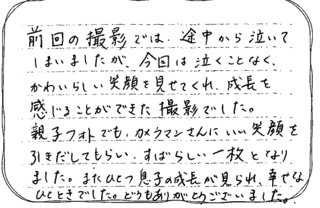 前回の撮影では、途中から泣いて
しまいましたが、今回は泣くことなく、
かわいらしい笑顔を見せてくれ、成長を
感じることができた撮影でした。
親子フォトでも、カメラマンさんにいい笑顔を
引きだしてもらい、すばらしい一枚となり
ました。またひとつ息子の成長が見られ、幸せな
ひとときでした。どうもありがとうございました。